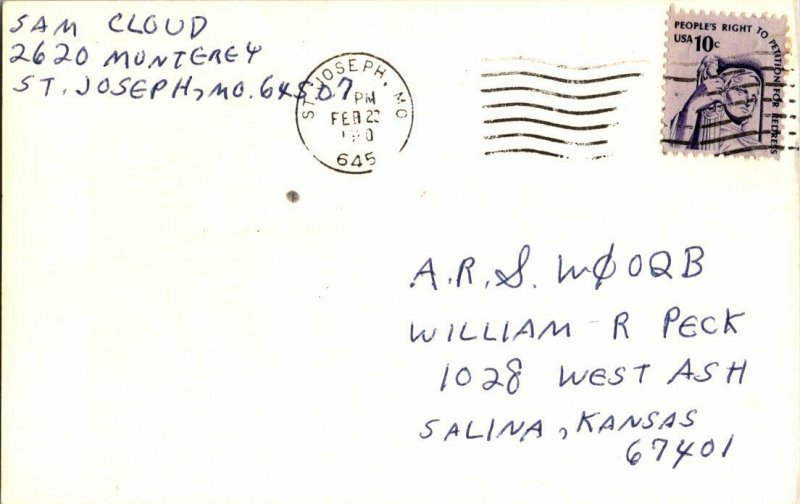 SAM CLOUD
2620 MONTEREY
ST. JOSEPH, MO. 64507
ST. JOSEPH, MO
PM
FEB 22
645
PEOPLE'S RIGHT TO PETITION FOR REDRESS
USA 10c
A.R.S. WØ0QB
WILLIAM R PECK
1028 WEST ASH
SALINA, KANSAS
67401